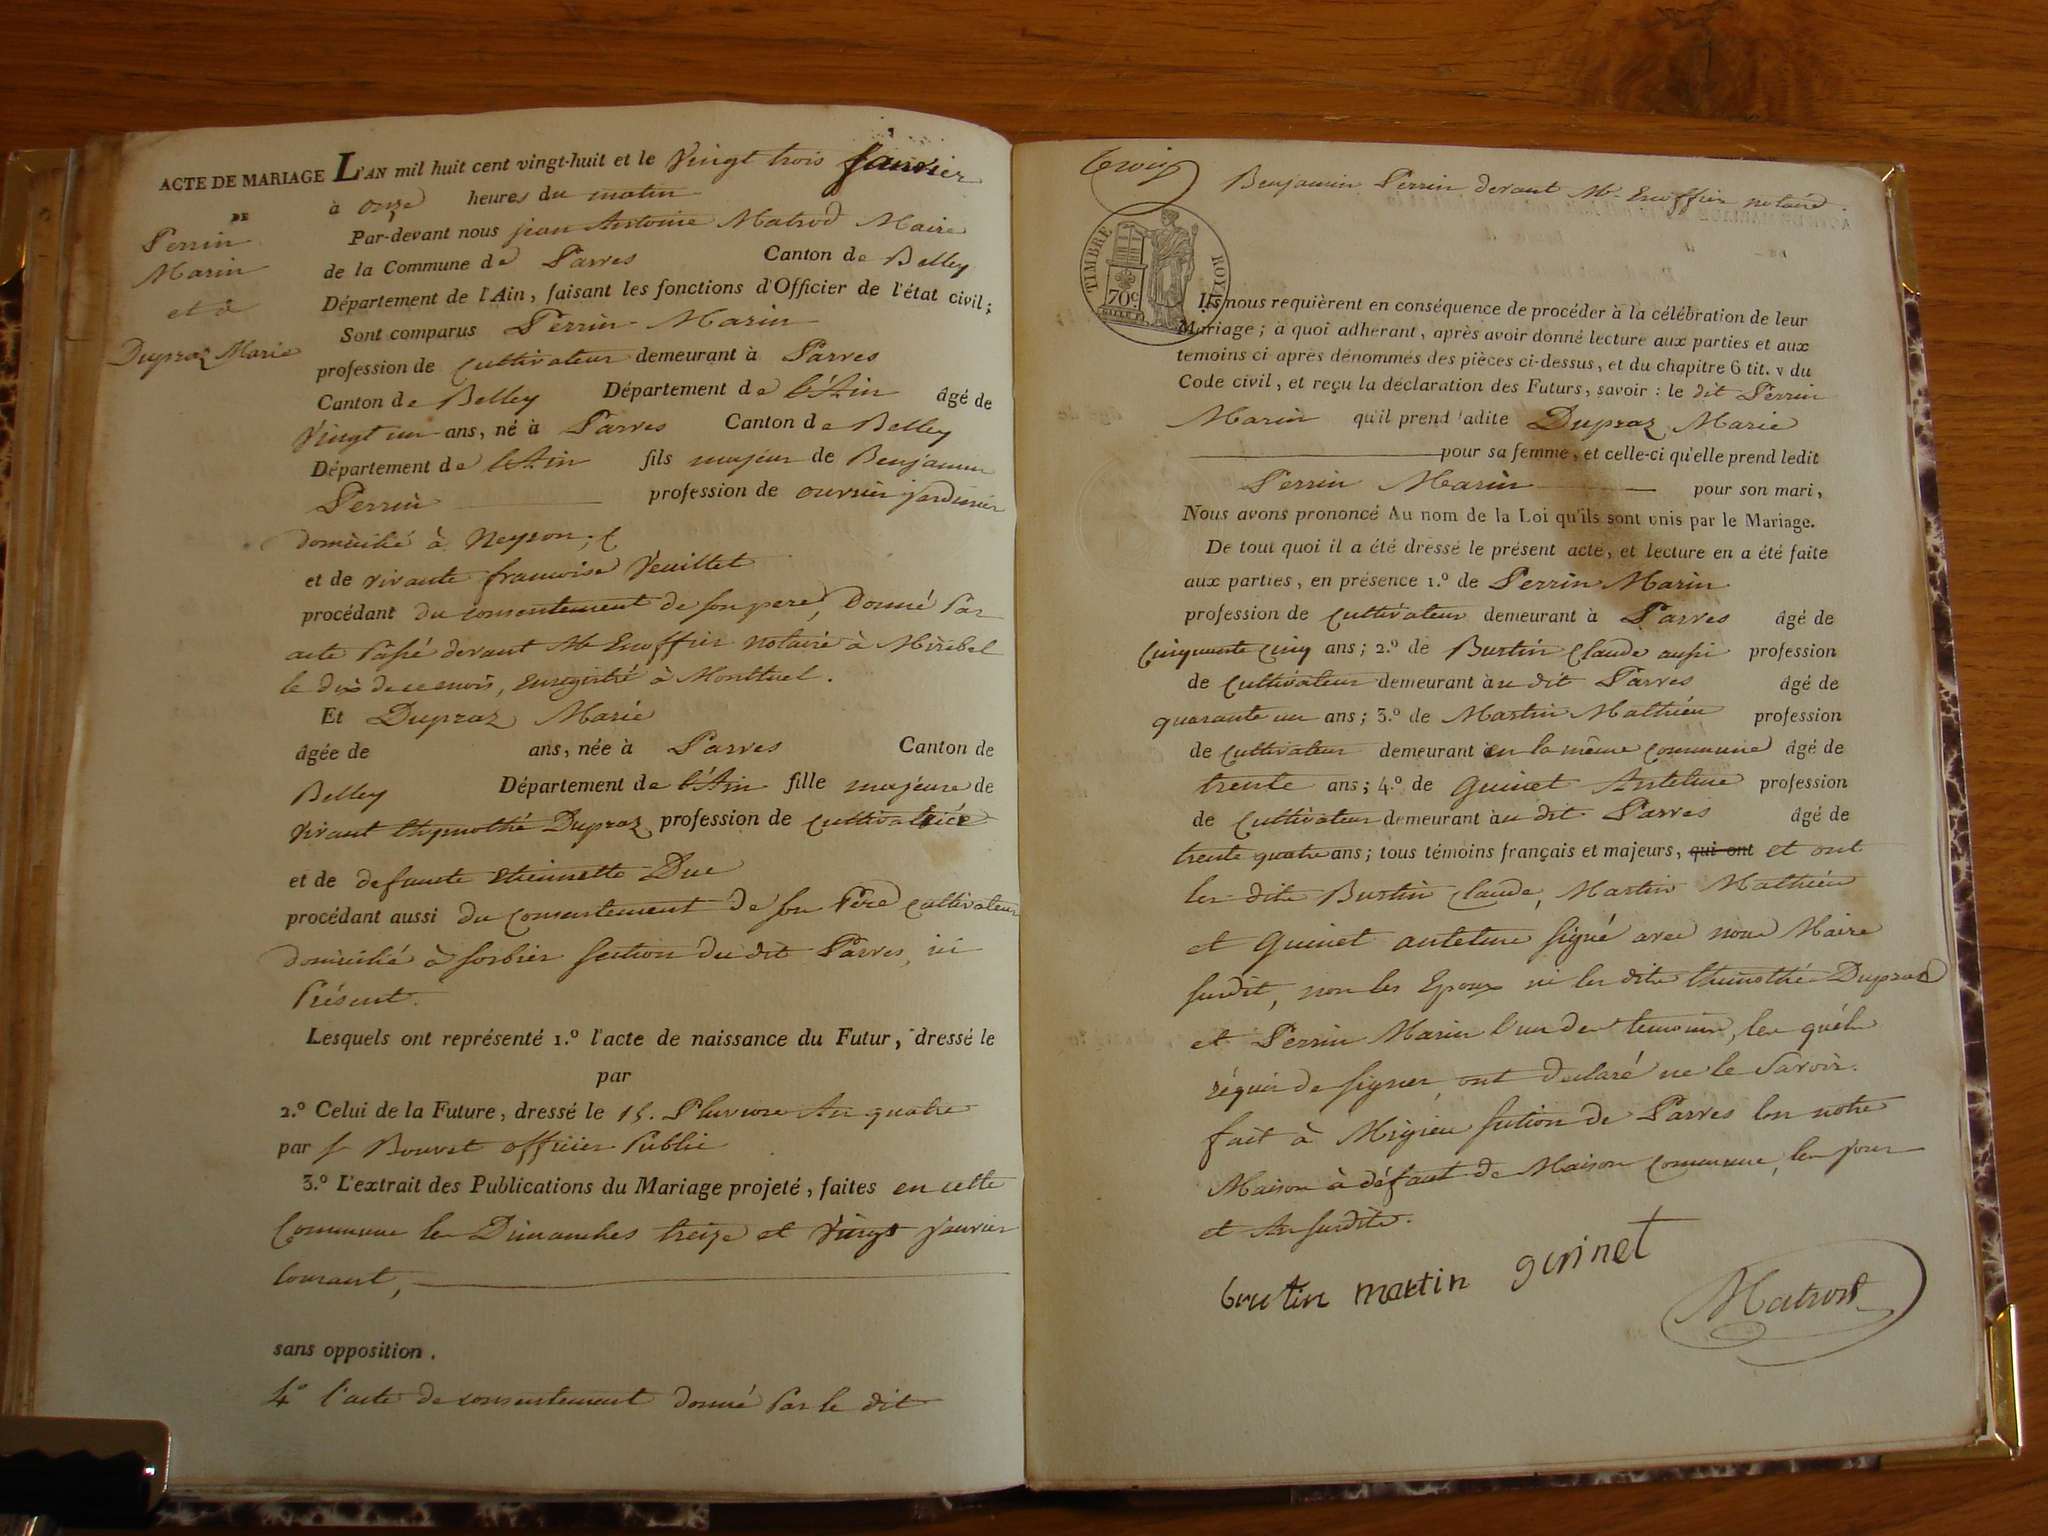 ACTE DE MARIAGE
DE
Perrin
Marin
et de
Dupraz Marie
L'AN mil huit cent vingt-huit et le Vingt trois Janvier
à onze heures du matin
Par-devant nous jean Antoine Matrod Maire
de la Commune de Parves Canton de Belley
Département de l'Ain, faisant les fonctions d'Officier de l'état civil;
Sont comparus Perrin Marin
profession de Cultivateur demeurant à Parves
Canton de Belley Département de l'Ain âgé de
Vingt un ans, né à Parves Canton de Belley
Département de l'Ain fils majeur de Benjamin
Perrin profession de ouvrier jardinier
domicilié à Neyron,
et de vivante francoise Veuillet
procédant du consentement de son pere, Donné Par
acte Passé devant Me Enoffier notaire à Miribel
le dix de ce mois, enregistré à Montluel.
Et Dupraz Marie
âgée de ans, née à Parves Canton de
Belley Département de l'Ain fille majeure de
vivant thymothé Dupraz profession de cultivatrice
et de defunte etiennette Duc
procédant aussi du consentement de son Père cultivateur
domicilié à sorbier section du dit Parves, ici
Présent.
Lesquels ont représenté 1.º l'acte de naissance du Futur, dressé le
par
2.º Celui de la Future, dressé le 15. Pluviose An quatre
par Sr Bouvet officier Public
3.º L'extrait des Publications du Mariage projeté, faites en cette
Commune les Dimanches treize et Vingt janvier
Courant,
sans opposition.
4º l'acte de consentement donné Par le dit
trois
Benjamin Perrin devant Me Enoffier notaire.
TIMBRE ROYAL
70c
Ils nous requièrent en conséquence de procéder à la célébration de leur
Mariage; à quoi adhérant, après avoir donné lecture aux parties et aux
témoins ci après dénommés des pièces ci-dessus, et du chapitre 6 tit. v du
Code civil, et reçu la déclaration des Futurs, savoir: le dit Perrin
Marin qu'il prend ladite Dupraz Marie
pour sa femme, et celle-ci qu'elle prend ledit
Perrin Marin pour son mari,
Nous avons prononcé Au nom de la Loi qu'ils sont unis par le Mariage.
De tout quoi il a été dressé le présent acte, et lecture en a été faite
aux parties, en présence 1.º de Perrin Marin
profession de Cultivateur demeurant à Parves âgé de
Cinquante Cinq ans; 2.º de Burtin Claude aussi profession
de Cultivateur demeurant au dit Parves âgé de
quarante un ans; 3.º de Martin Mathieu profession
de Cultivateur demeurant en la même Commune âgé de
trente ans; 4.º de Guinet Antelme profession
de Cultivateur demeurant au dit Parves âgé de
trente quatre ans; tous témoins français et majeurs, qui ont et ont
les dits Burtin Claude, Martin Mathieu
et Guinet antelme signé avec nous Maire
susdit, non les Epoux ni les dits thimothé Dupraz
et Perrin Marin l'un des temoins, les quels
réquis de signer, ont declaré ne le Savoir.
fait à Migieu section de Parves en notre
Maison à défaut de Maison Commune, les jour
et An susdits.
burtin martin guinet
Matrod